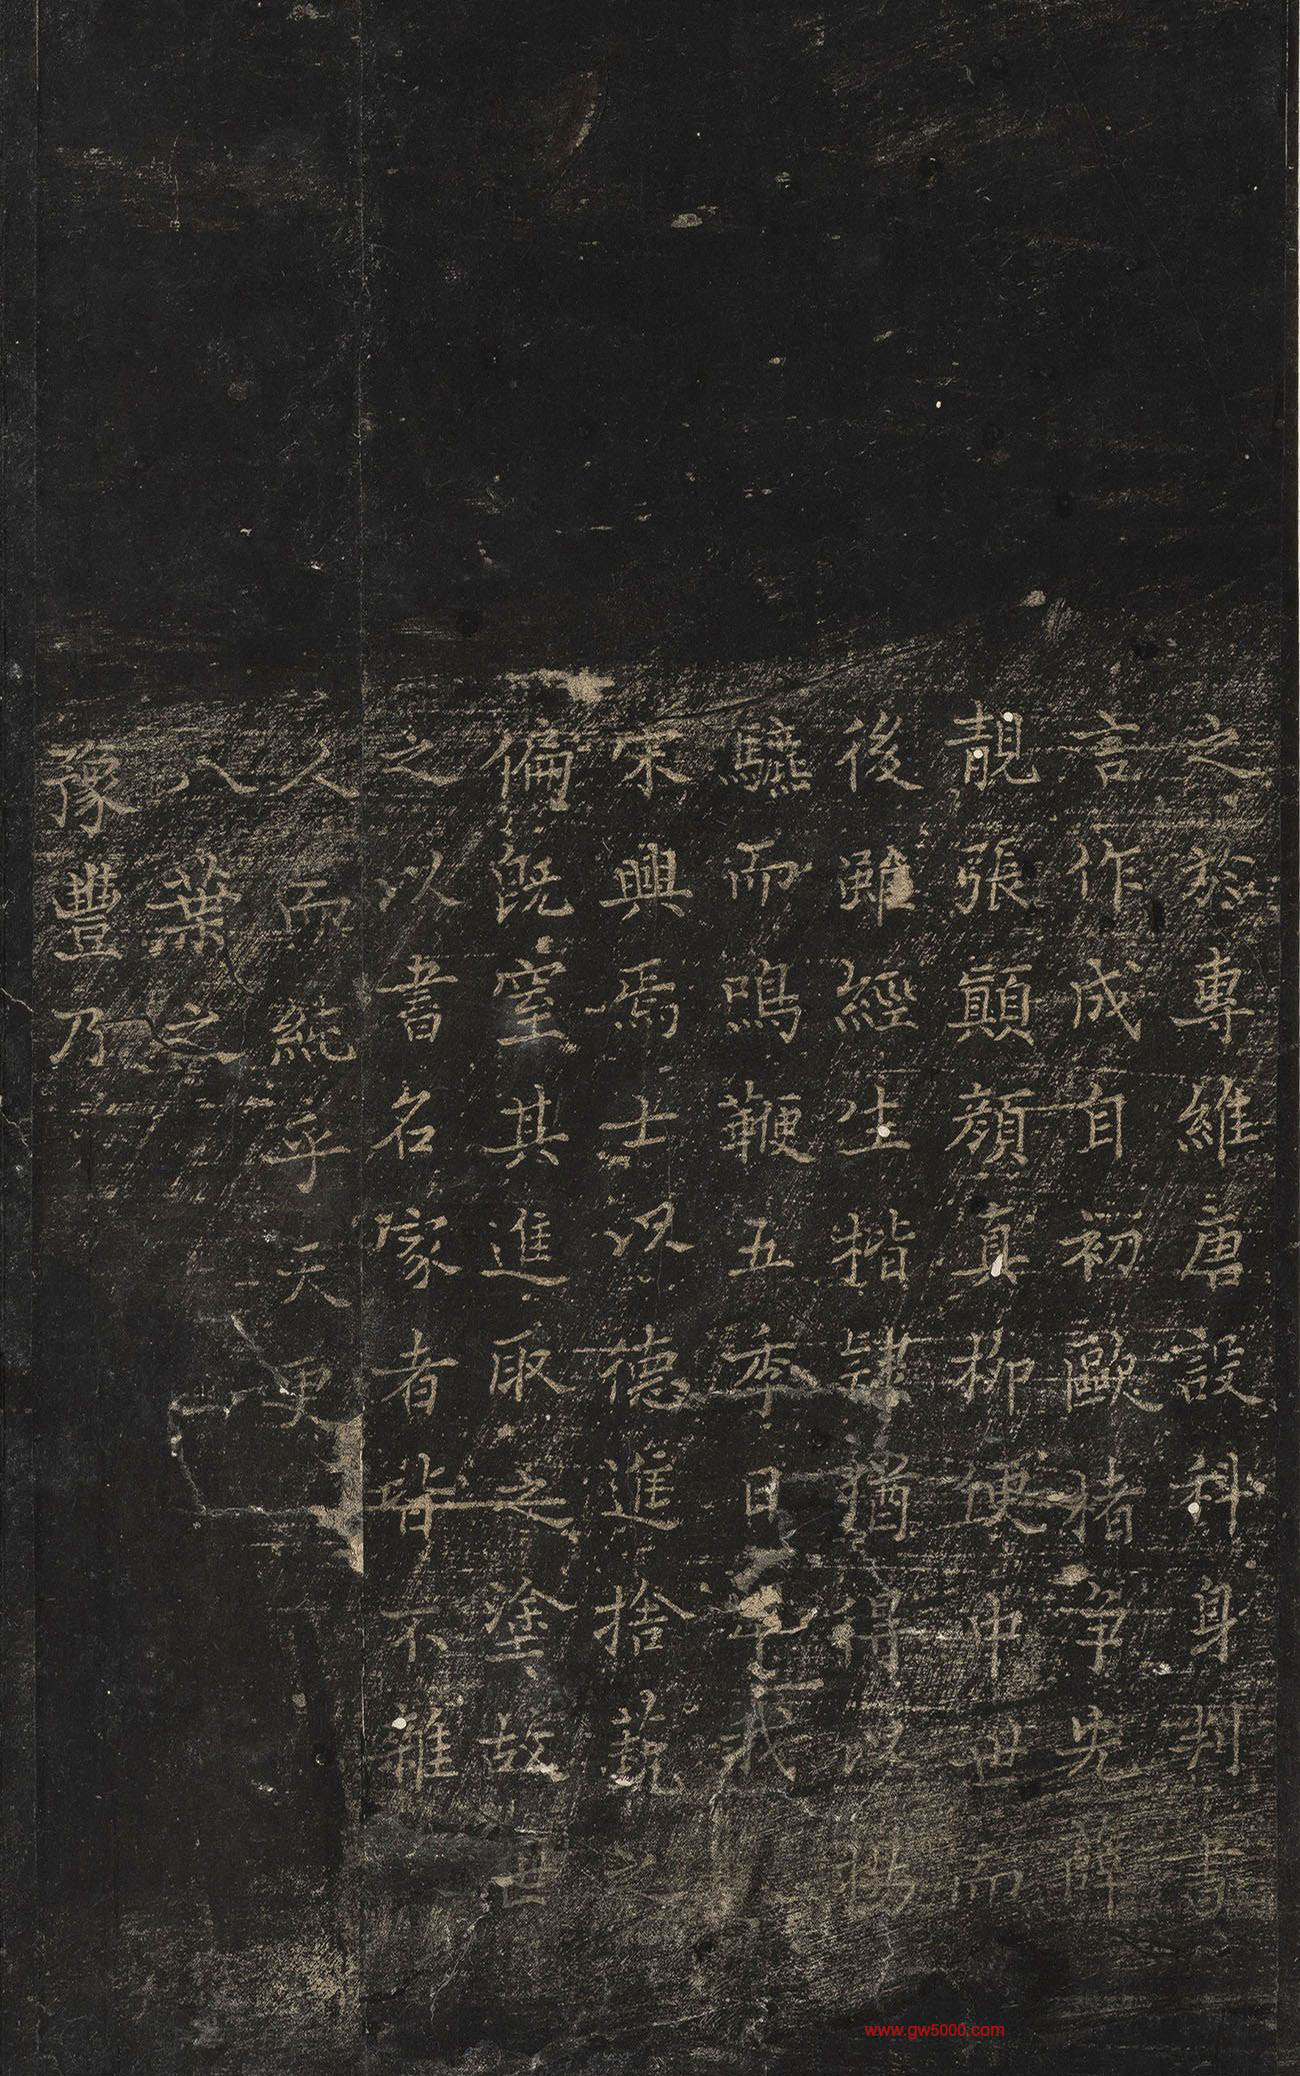 之於專維唐設科身判書
言作成自初歐褚爭先薛
靚張顛顏真柳便中世而
後雖經生揩隸猶得以攜
驪而鳴鞭五季日年我
宋興焉士以德進捨藝之
偏既窒其進取之塗故世
之以書名家者皆不雜
人而純乎天更
八葉之
豫豐乃
www.gw5000.com